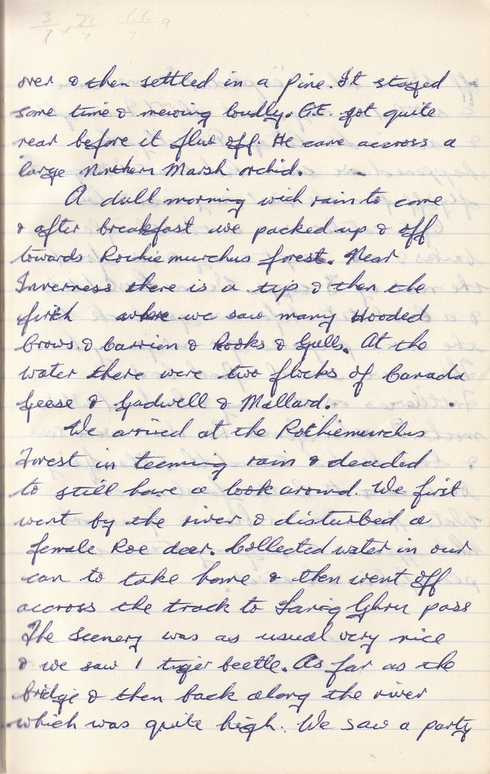 over & then settled in a Pine. It stayed
some time & mewing loudly. C.E. got quite
near before it flew off. He came accross a
large Northern Marsh orchid.
A dull morning with rain to come
& after breakfast we packed up & off
towards Rothiemurchus forest. Near
Inverness there is a tip & then the
firth where we saw many Hooded
Crows. & Carrion & Rooks & Gulls. At the
water there were two flocks of Canada
Geese & Gadwell & Mallard.
We arrived at the Rothiemurchus
Forest in teeming rain & decided
to still have a look around. We first
went by the river & disturbed a
female Roe deer. Collected water in our
can to take home & then went off
accross the track to Larig Ghru pass
The scenery was as usual very nice
& we saw 1 tiger beetle. As far as the
bridge & then back along the river
which was quite high. We saw a party